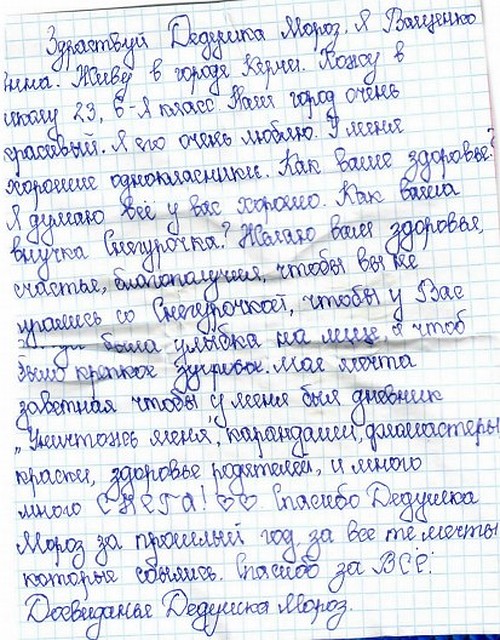 Здраствуй Дедушка Мороз. Я Ващенко
Инна. Живу в городе Керчи. Хожу в
школу 23, 6-Я класс. Наш город очень
красивый. Я его очень люблю. У меня
хорошие однокласники. Как ваше здоровье?
Я думаю всё у вас хорошо. Как ваша
внучка Снегурочка? Желаю вам здоровья,
счастье, благополучия, чтобы вы не
ссорились со Снегурочкой, чтобы у Вас
была улыбка на лице, и чтоб
было крепкое здоровье. Моя мечта
заветная чтобы у меня был дневник
„Уничтожь меня", карандаши, фламастеры
краски, здоровье родителей, и много
много СНЕГА! ♡♡. Спасибо Дедушка
Мороз за прошлый год, за все те мечты
которые сбылись. Спасибо за ВСЁ!
Досвиданье Дедушка Мороз.